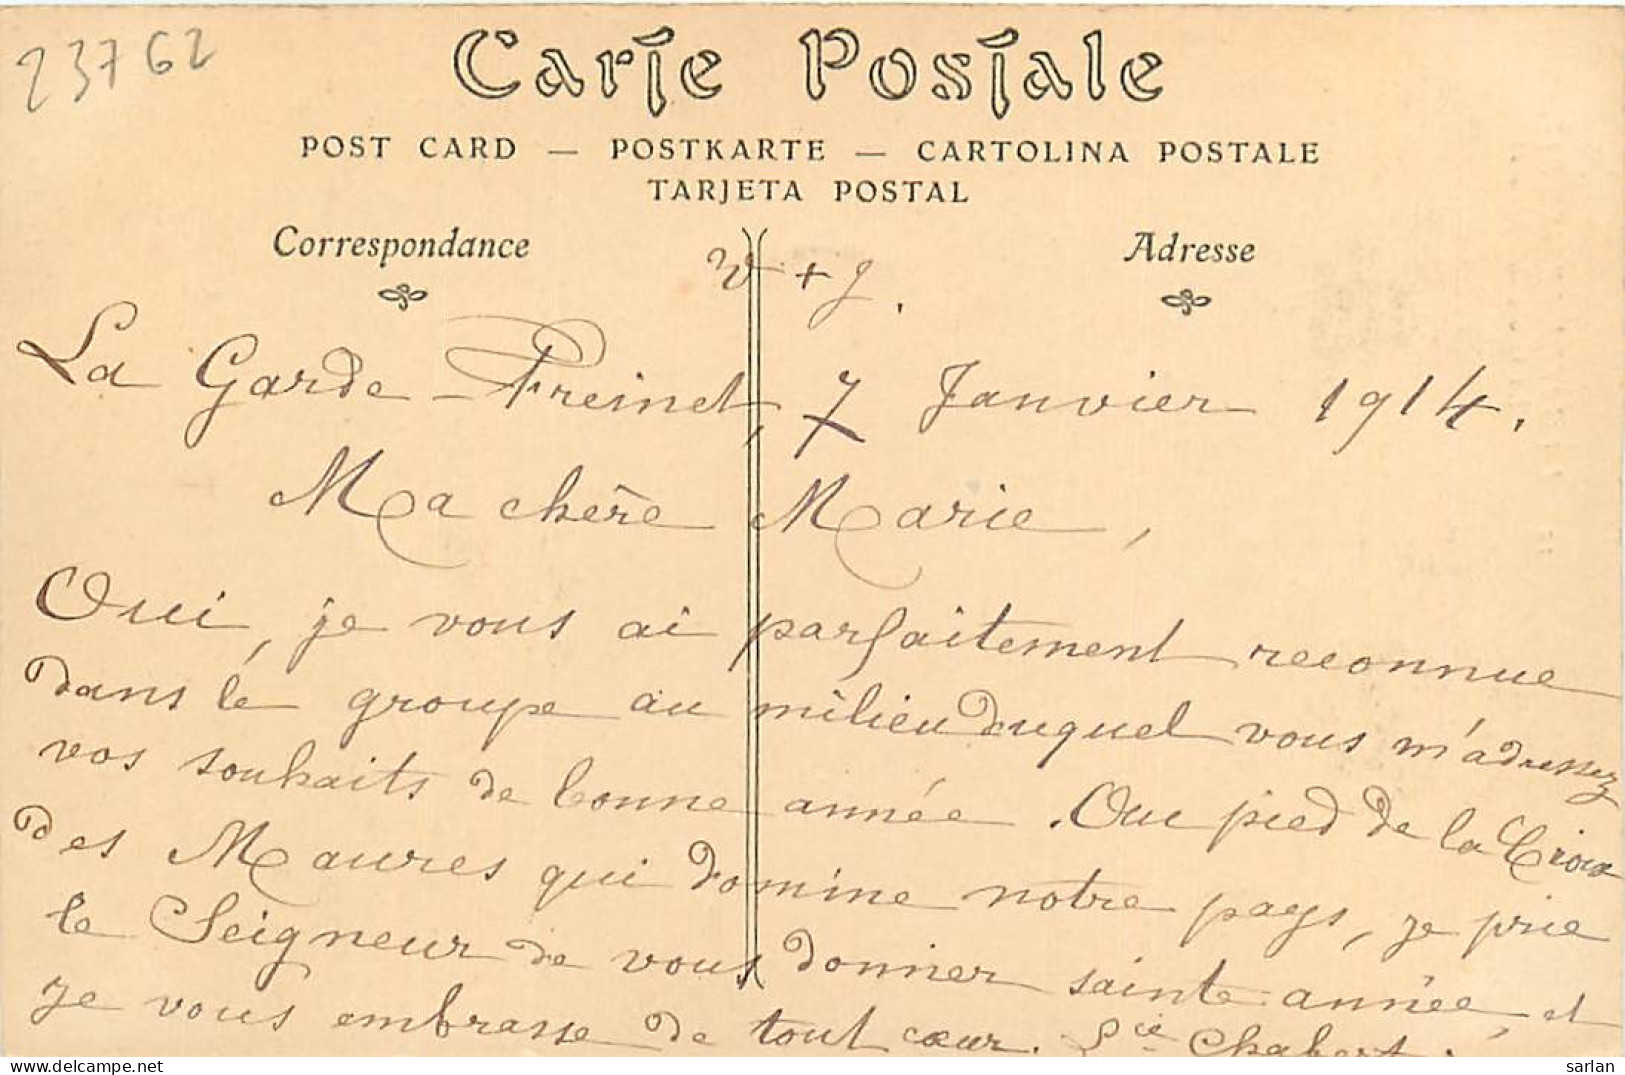 23762
Carte Postale
POST CARD — POSTKARTE — CARTOLINA POSTALE
TARJETA POSTAL
Correspondance
Adresse
V + J.
La Garde-Freinet, 7 Janvier 1914.
Ma chère Marie,
Oui, je vous ai parfaitement reconnue
dans le groupe au milieu duquel vous m'adressez
vos souhaits de bonne année. Au pied de la Croix
des Maures qui domine notre pays, je prie
le Seigneur de vous donner sainte année, et
je vous embrasse de tout cœur. Chabert.
Sarlan